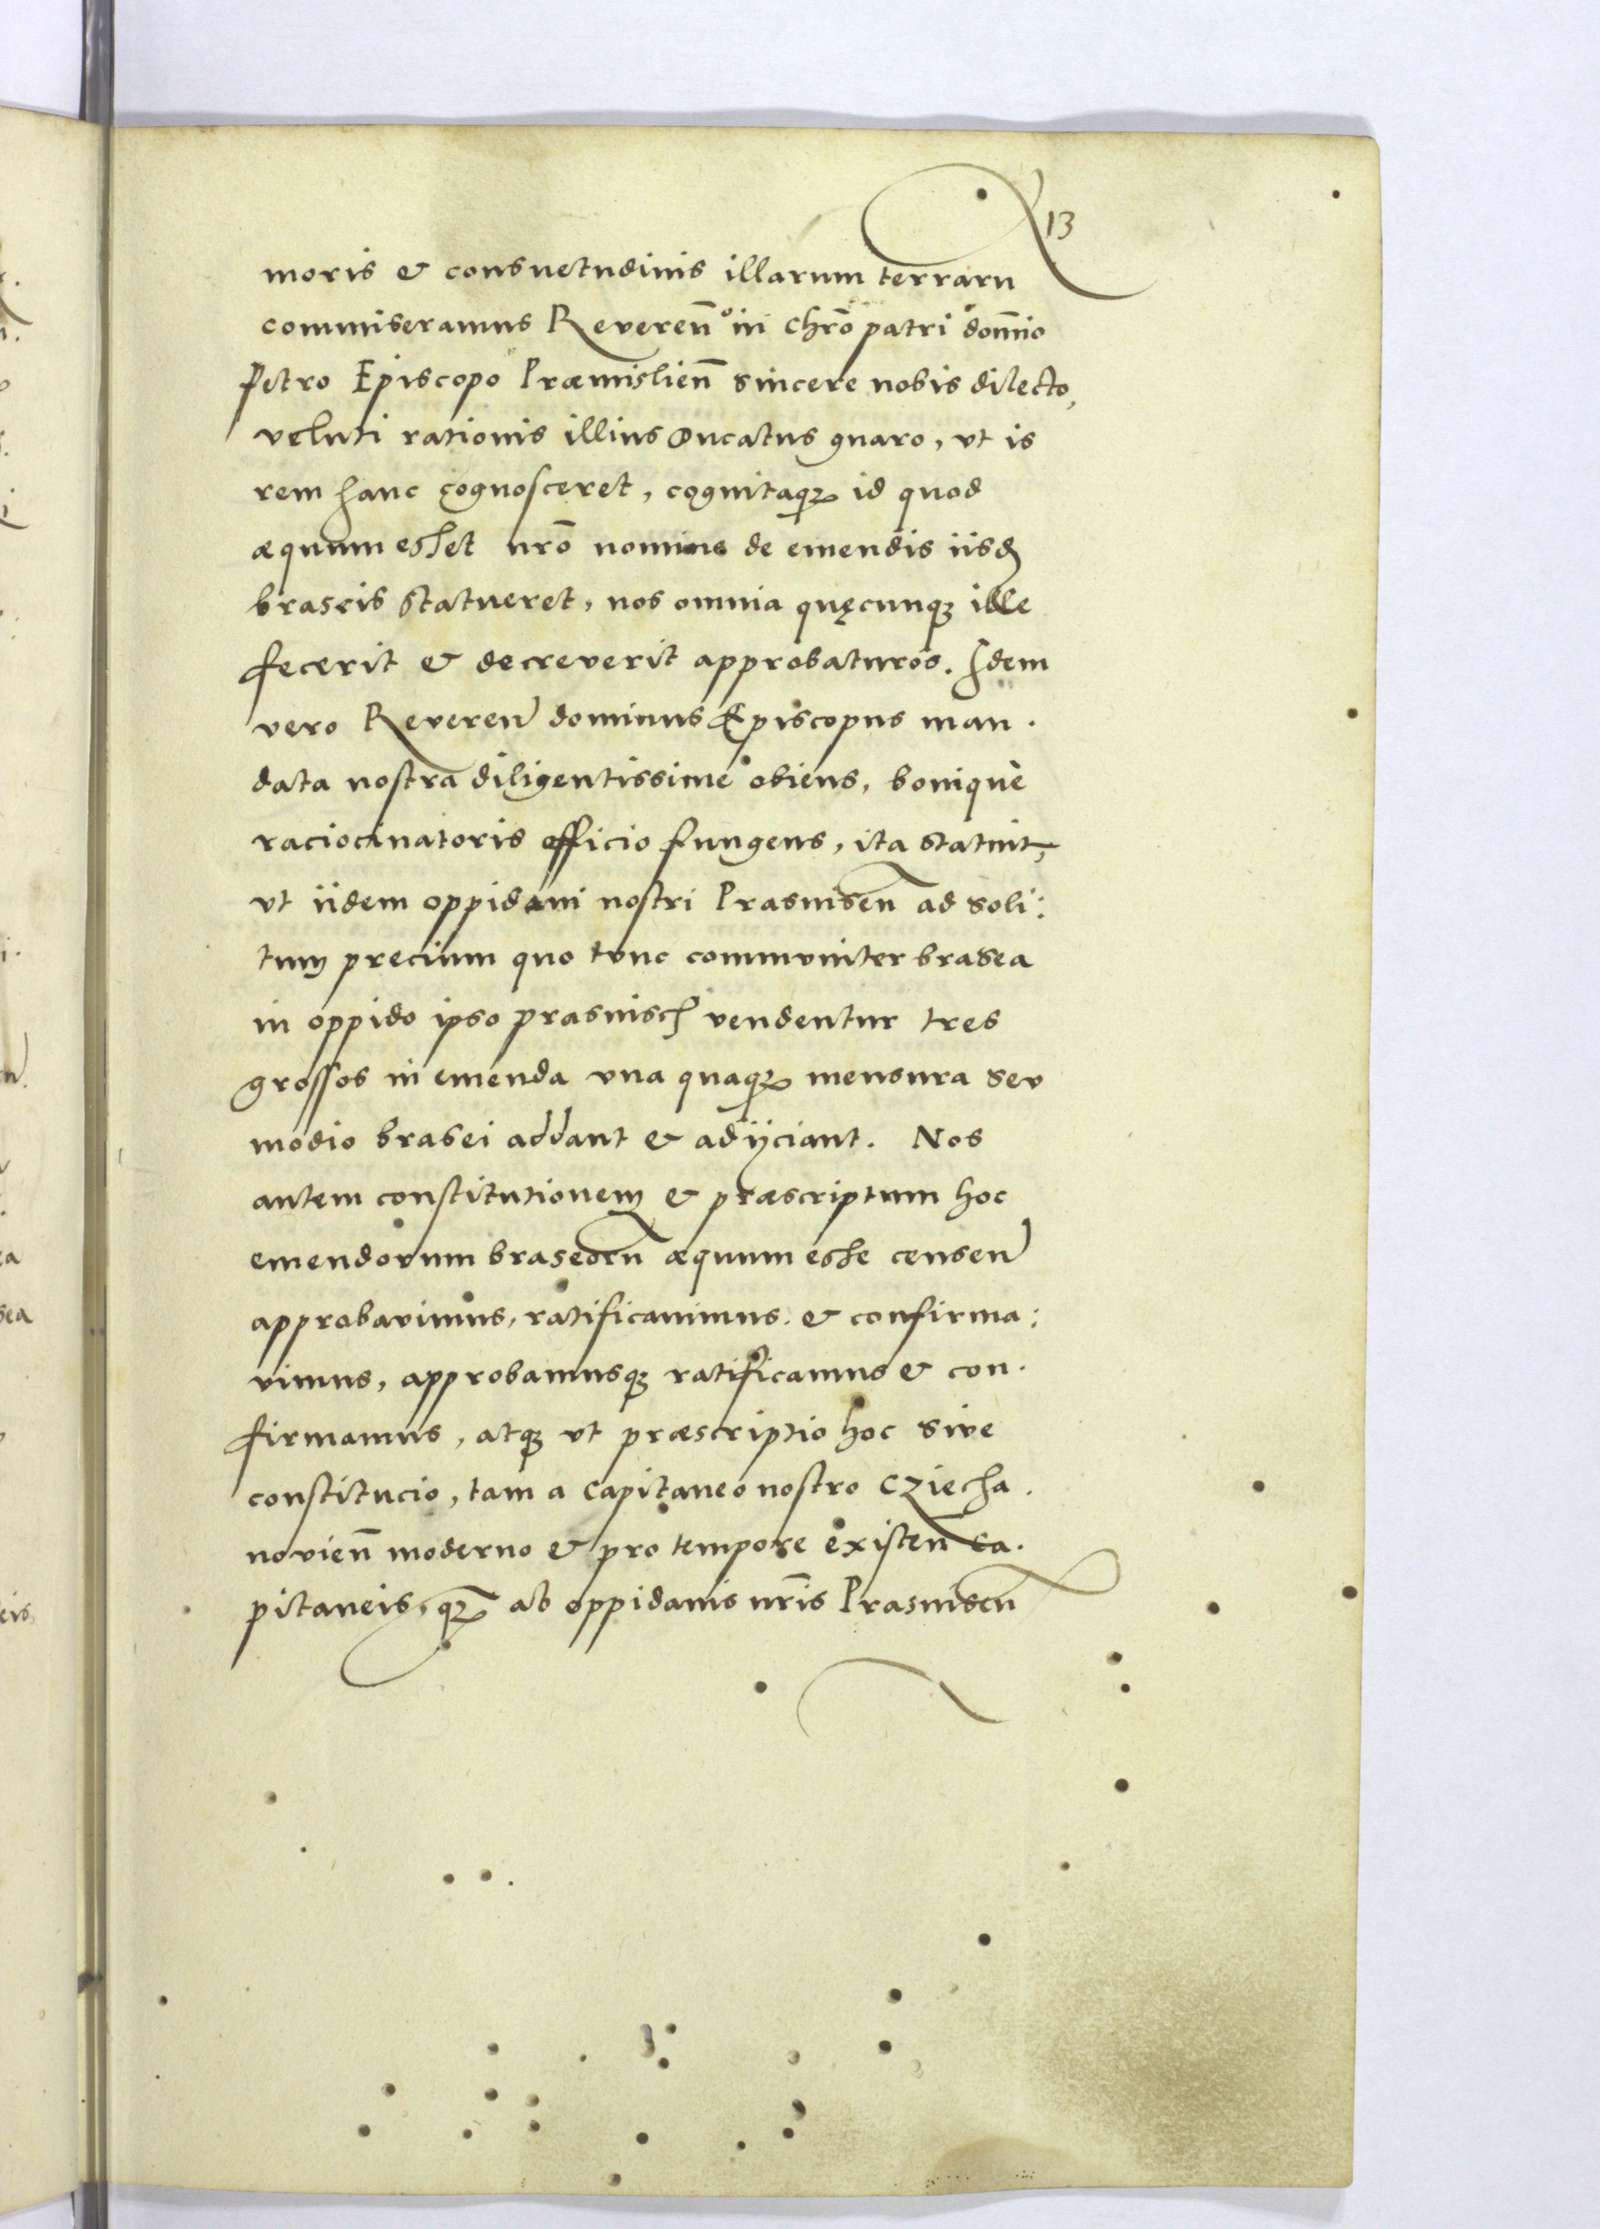 13
moris & consuetudinis illarum terrarũ
commiseramus Reveren̄º in chr̄o patri don̄nio
Petro Episcopo Præmislien̄ sincere nobis dilecto,
veluti rationis illius Ducatus gnaro, vt is
rem hanc cognosceret, cognitaqꝫ id quod
æquum esset nr̄o nomine de emendis iisdꝫ
braseis statueret, nos omnia quęcunqꝫ ille
fecerit & decreverit approbaturos. Idem
vero Reveren̄ dominus Episcopus man.
data nostra diligentissime obiens, bonique
raciocinatoris officio fungens, ita statuit,
vt iidem oppidani nostri Prasnisen̄ ad soli:
tum precium quo tunc communiter brasea
in oppido ipso prasnisch vendentur tres
grossos in emenda vna quaqꝫ mensura seu
modio brasei addant & adijciant. Nos
autem constitutionem & præscriptum hoc
emendorum braseorũ æquum esse censen̄
approbavimus, ratificavimus & confirma:
vimus, approbamusqꝫ ratificamus & con.
firmamus, atqꝫ vt præscriptio hoc sive
constitucio, tam a Capitaneo nostro Cziecha.
novien̄ moderno & pro tempore existen̄ ca.
pitaneis, qꝫ ab oppidanis nr̄is Prasnisen̄